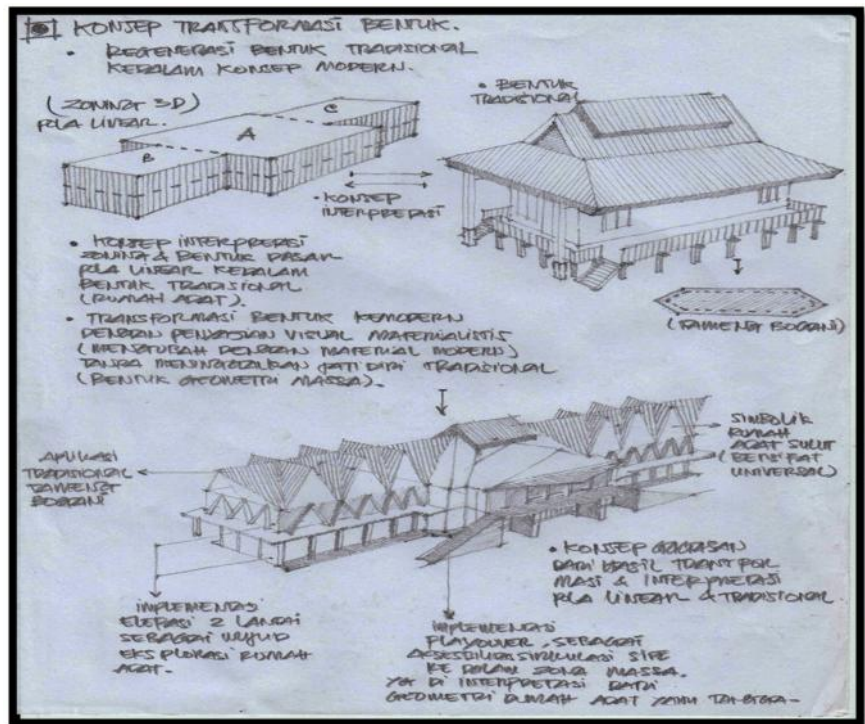 KONSEP TRANSFORMASI BENTUK.
• REGENERASI BENTUK TRADISIONAL
KEDALAM KONSEP MODERN.
(ZONING 3D)
PLA LINEAR.
A
B
C
• BENTUK
TRADISIONAL
• KONSEP
INTERPRETASI
• KONSEP INTERPRETASI
ZONING & BENTUK DASAR
PLA LINEAR KEDALAM
BENTUK TRADISIONAL
(RUMAH ADAT).
(TAMENG BOGANI)
• TRANSFORMASI BENTUK KEMODERN
DENGAN PENKAJIAN VISUAL MATERIALISTIS
(MENGUBAH DENGAN MATERIAL MODERN)
TANPA MENINGGALKAN JATI DIRI TRADISIONAL
(BENTUK GEOMETRI MASSA).
APLIKASI
TRADISIONAL
TAMENG
BOGANI
SIMBOLIK
RUMAH
ADAT SULUT
(BERSIFAT
UNIVERSAL)
• KONSEP GAGASAN
DARI HASIL TRANSFOR
MASI & INTERPRETASI
PLA LINEAR & TRADISIONAL.
IMPLEMENTASI
ELEVASI 2 LANTAI
SEBAGAI WUJUD
EKSPLORASI RUMAH
ADAT.
IMPLEMENTASI
PLAYOUVER, SEBAGAI
AKSESBILITAS SIRKULASI SITE
KE DALAM ZONA MASSA.
YG DI INTERPRETASI DARI
GEOMETRI RUMAH ADAT YAITU